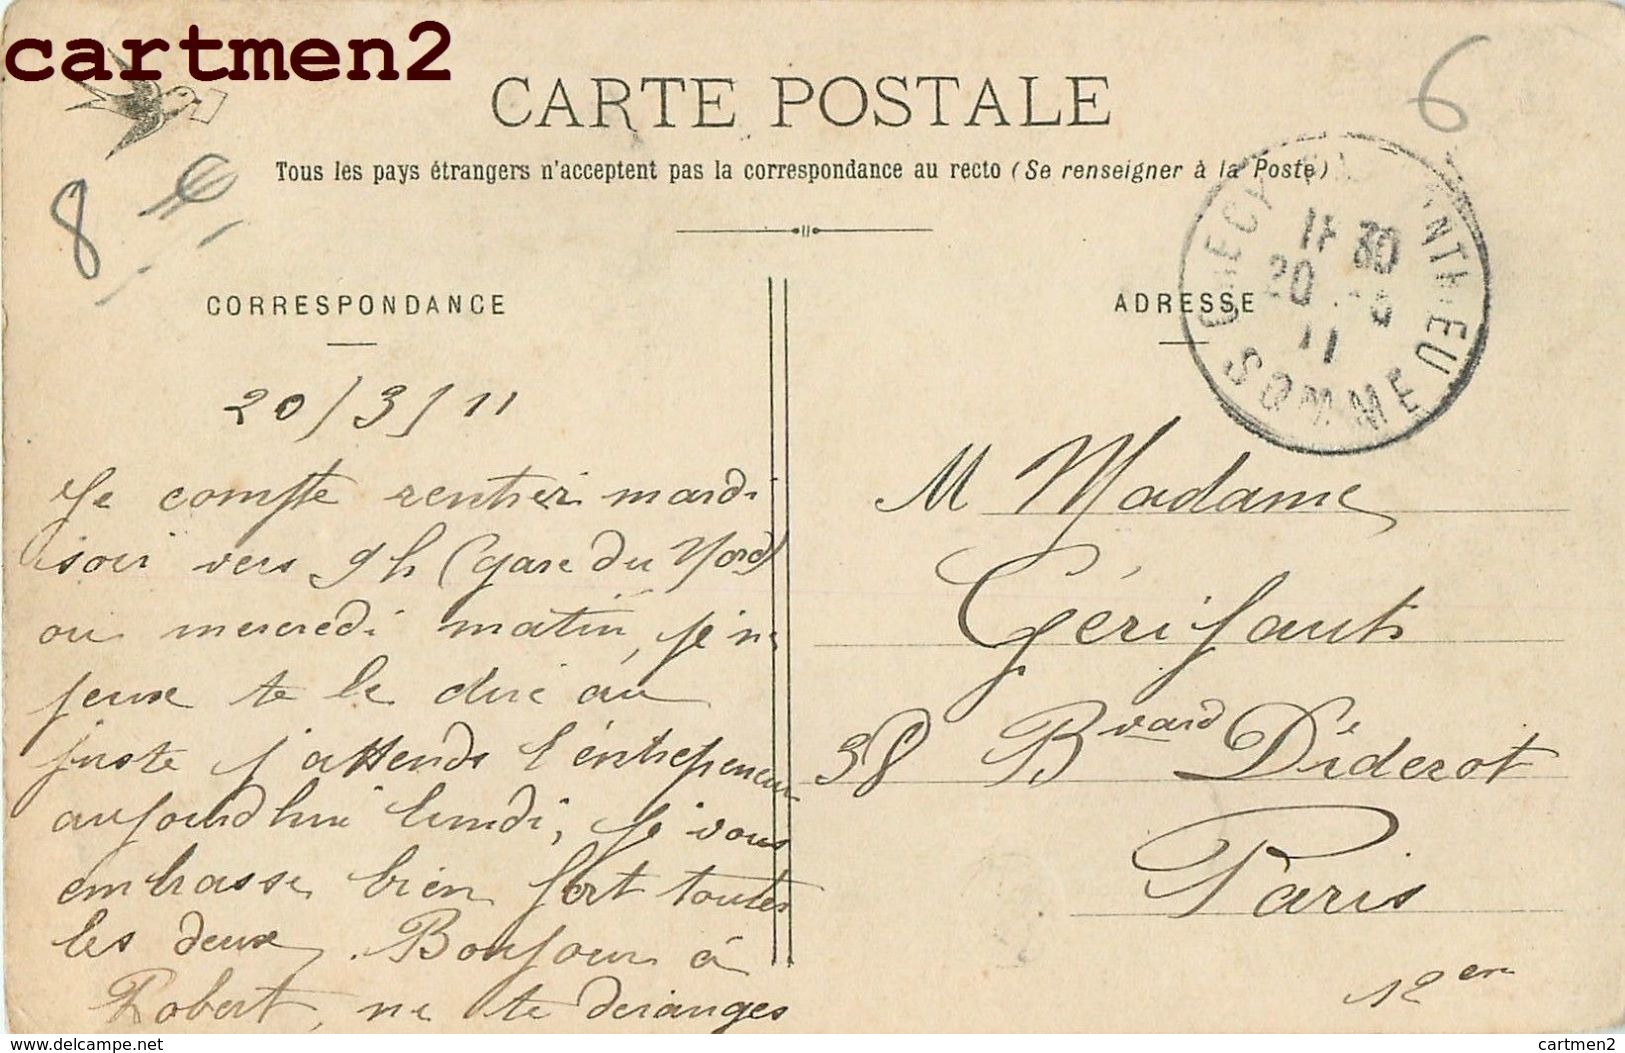 cartmen2
CARTE POSTALE
6
Tous les pays étrangers n'acceptent pas la correspondance au recto (Se renseigner à la Poste)
8 €
CORRESPONDANCE
ADRESSE
CRECY PONTHIEU
11 30
20
11
SOMME
20/3/11
Je compte rentrer mardi
soir vers 9h (gare du Nord)
ou mercredi matin, je ne
peux te le dire au
juste j'attends l'entrepeneur
aujourd'hui lundi, je vous
embrasse bien fort toutes
les deux. Bonjour à
Robert, ne te deranges
M Madame
Gérifaut
38 Bvard Diderot
Paris
12em
https://www.delcampe.net
cartmen2